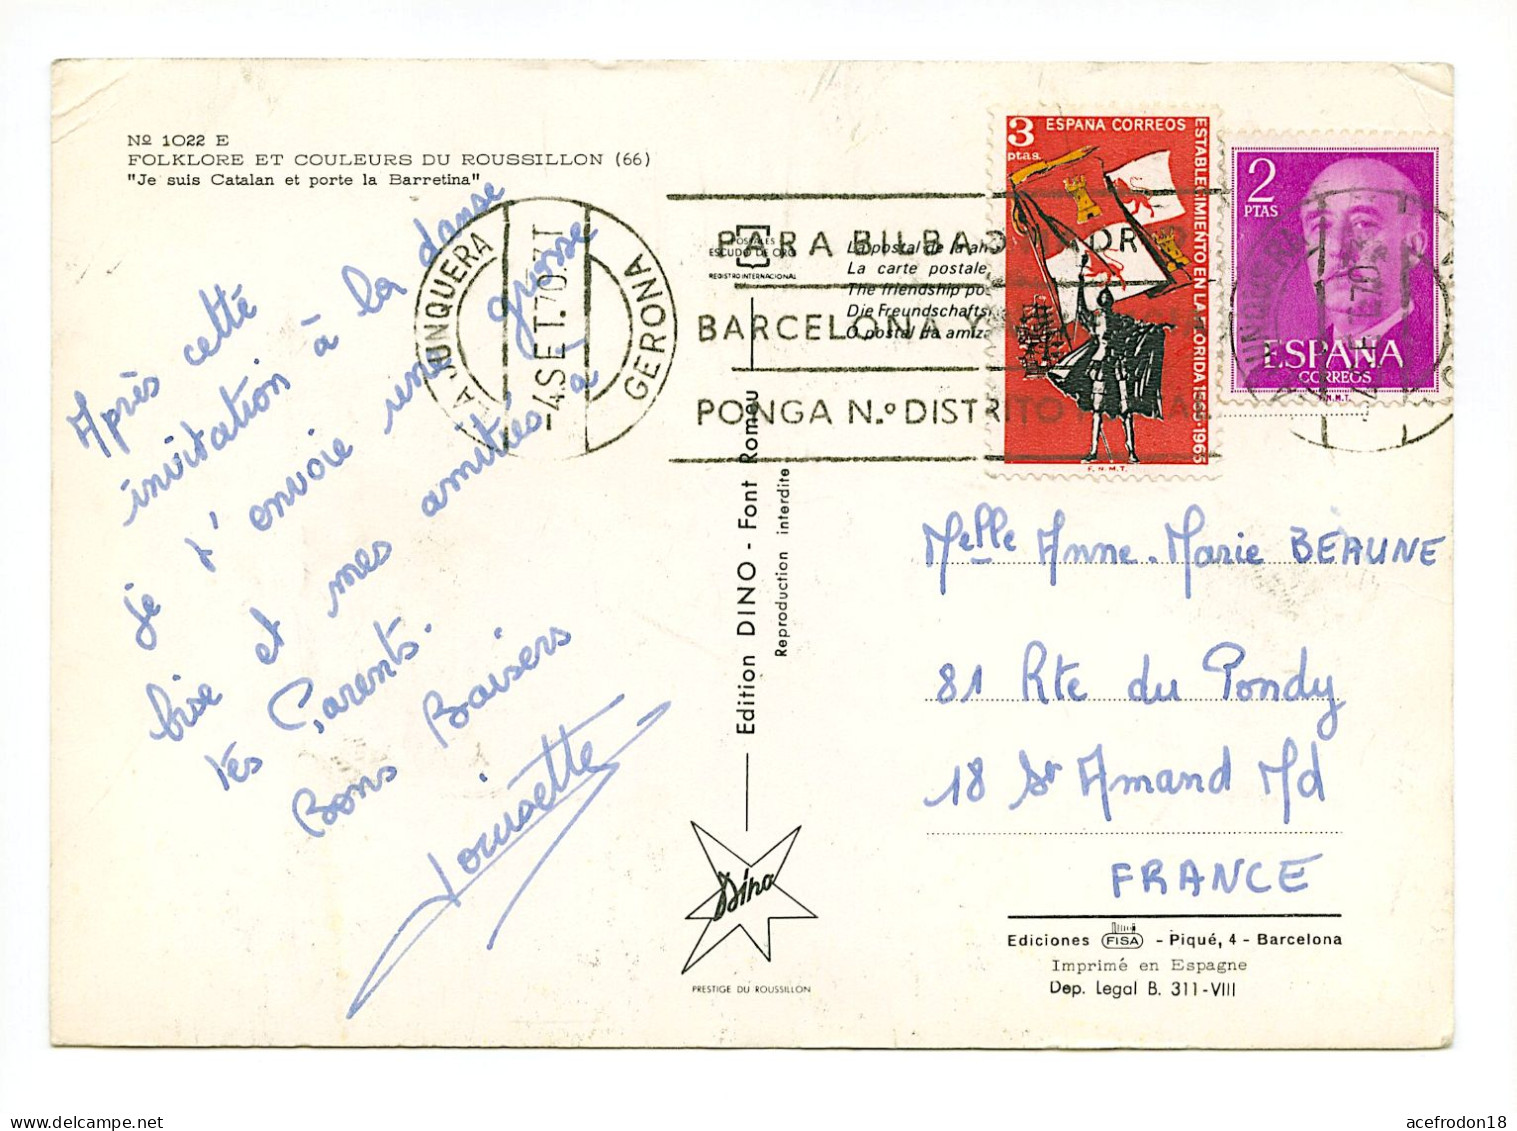 Nº 1022 E
FOLKLORE ET COULEURS DU ROUSSILLON (66)
"Je suis Catalan et porte la Barretina"
Après cette
invitation à la danse
je t'envoie une grosse
bise et mes amitiés à
tes Parents.
Bons Baisers
Louisette
LA JUNQUERA
-4.SET.70
GERONA
PARA BILBAO
BARCELONA
PONGA N.º DISTRITO
POSTALES
ESCUDO DE ORO
REGISTRO INTERNACIONAL
La postal de la
La carte postale
The friendship
Die Freundschafts
O postal da
Edition DINO - Font Romeu
Reproduction interdite
Dino
PRESTIGE DU ROUSSILLON
3 ptas.
ESPAÑA CORREOS
ESTABLECIMIENTO EN LA FLORIDA 1565-1965
F.N.M.T.
2
PTAS
ESPAÑA
CORREOS
F.N.M.T.
Melle Anne-Marie BEAUNE
81 Rte du Pondy
18 St Amand Md
FRANCE
Ediciones FISA - Piqué, 4 - Barcelona
Imprimé en Espagne
Dep. Legal B. 311-VIII
acefrodon18